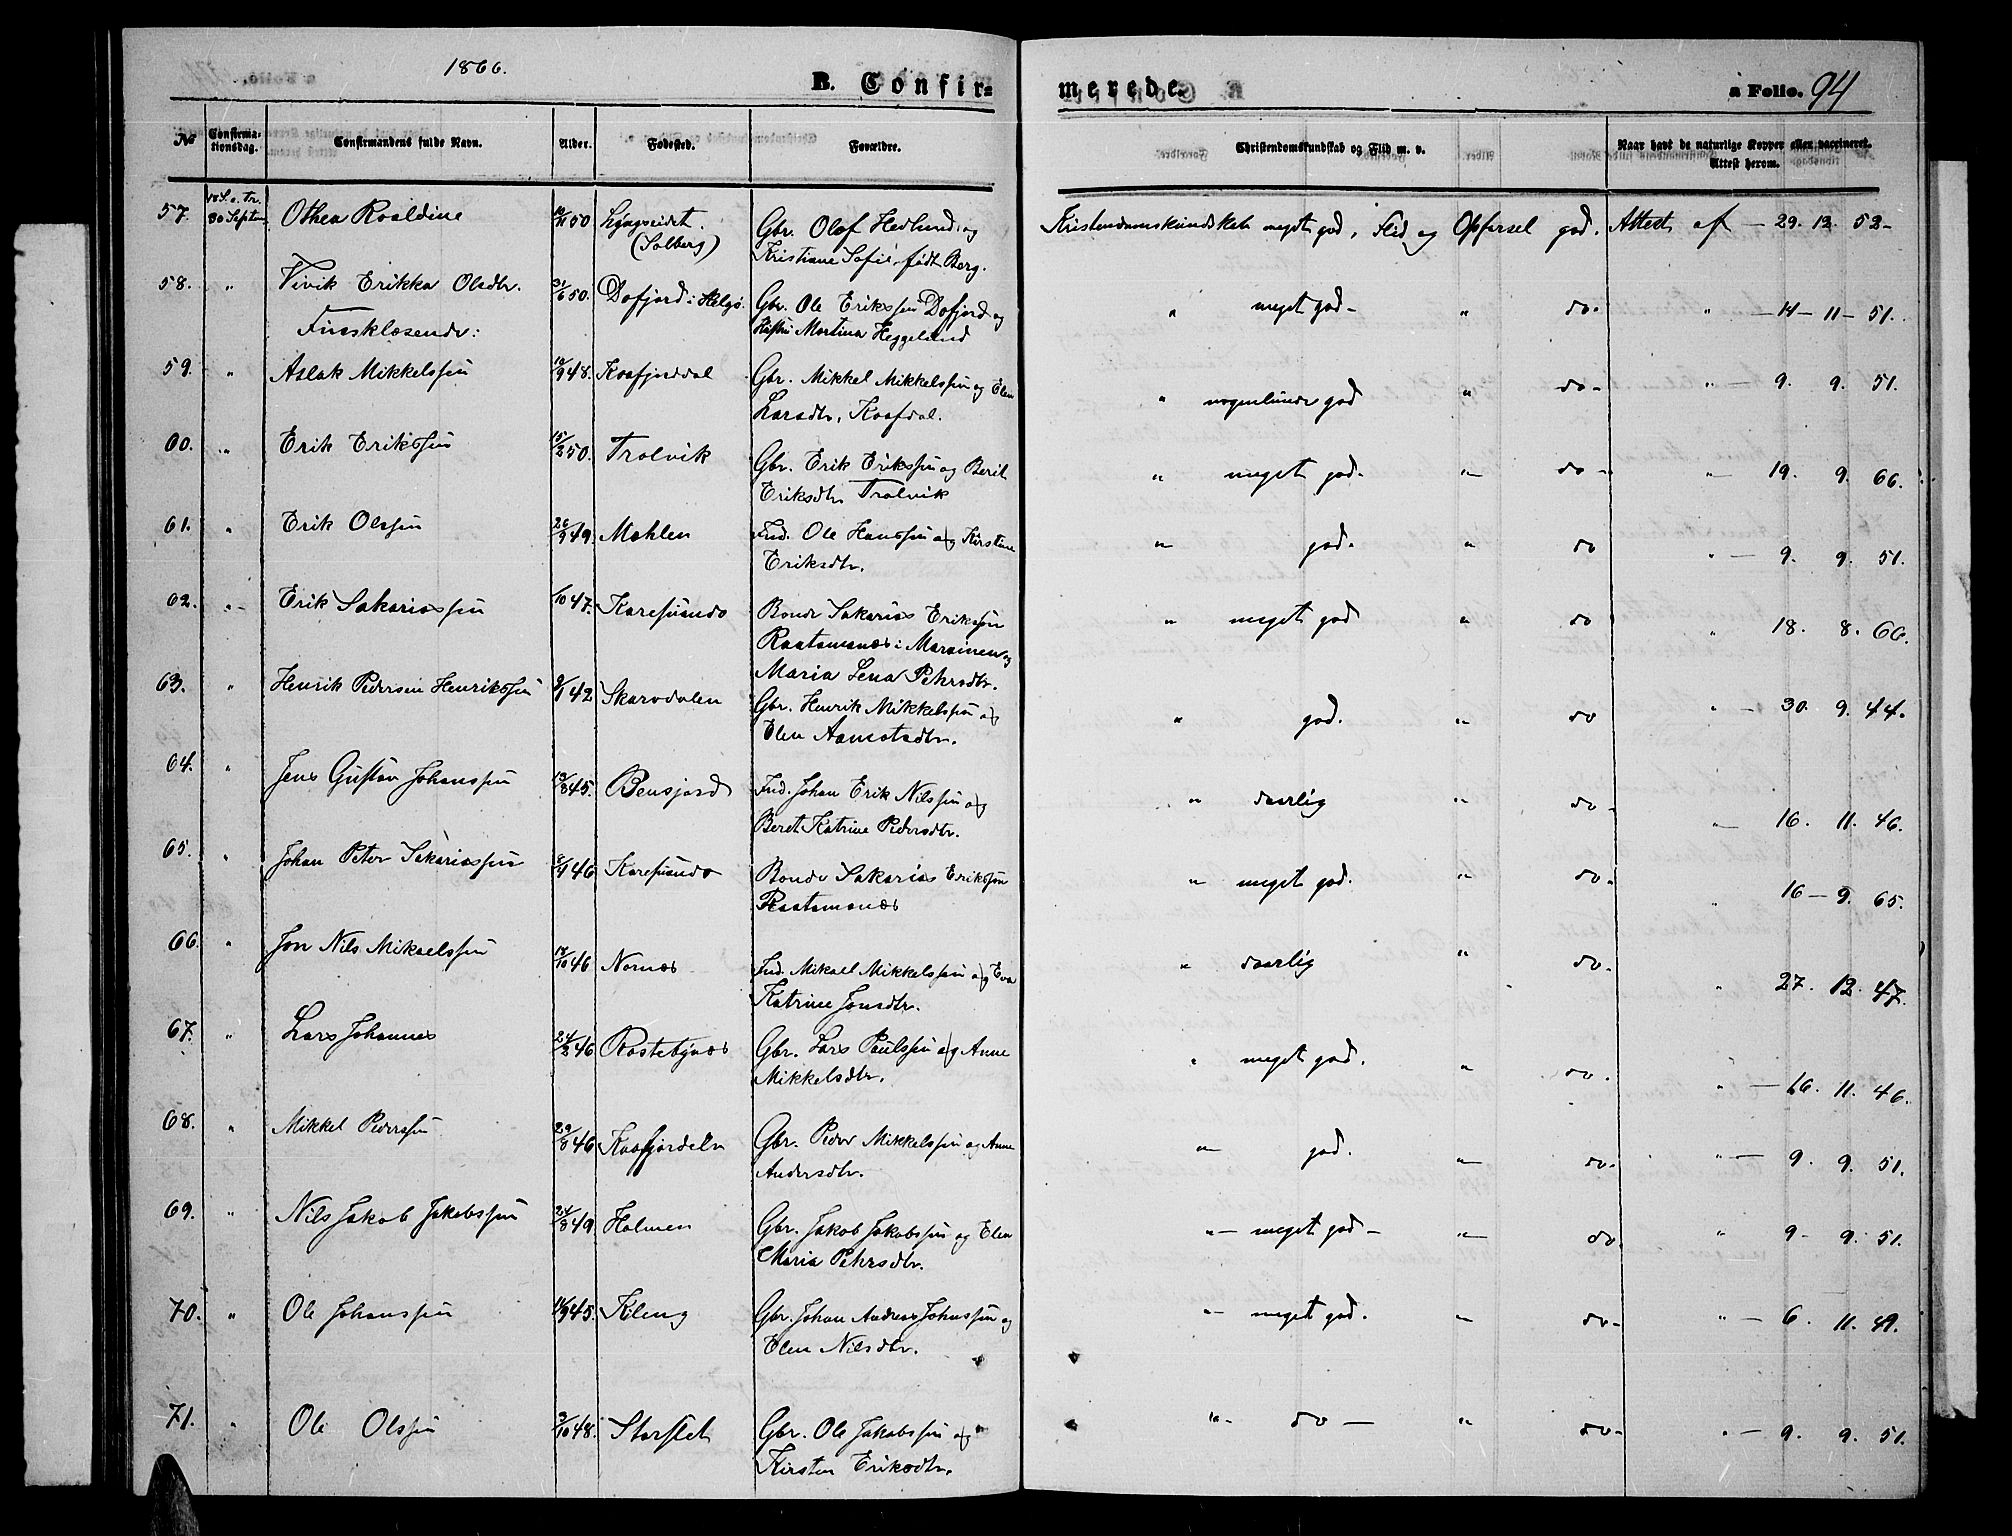 1866.
B. Confirmerede.
a Folio. 94
No
Confirmationsdag.
Confirmandens fulde Navn.
Alder.
Fodested.
Forældre.
Christendomskundskab og Flid m. v.
Naar havt de naturlige Kopper eller vaccineret. Attest herom.
57. 18 S. e. Tr. 30 Septem Othea Roaldine 50 Lyngseidet. (Solberg) Gbr. Olof Hedlund og Kristiane Sofie født Berg. Kristendomskundskab meget god, Flid og Opførsel god. Attest af — 29. 12. 52-
58. " Vivik Erikka Olsdtr. 31/6 50. Dofjord i Helgø. Gbr. Ole Eriksen Dofjord og Hustru Martina Heggelund " meget god - " do- " 14 - 11 - 51.
Finsklæsende:
59. " Aslak Mikkelssen 10/9 48. Kaafjorddal Gbr. Mikkel Mikkelssen og Elen Larsdtr. Kaafdal. " nogenlunde god " do- " - 9. 9. 51.
60. " Erik Erikssen 15/2 50. Trolvik Gbr. Erik Erikssen og Berit Eriksdtr Trolvik " meget god. " do - " 19. 9. 66.
61. " Erik Olssen 26/9 49. Mohlen Ind. Ole Hanssen og Kirstine Eriksdtr. " god. " do " - 9. 9. 51.
62. " Erik Sakariassen 47. Karesuando Bonde Sakarias Erikssen Raatamanæs i Marainen og Maria Lena Pehrsdtr. " meget god " do " 18. 8. 66.
63. " Henrik Pedersen Henrikssen 42 Skarvdalen Gbr. Henrik Mikkelssen og Elen Aamotsdtr. " god. " do " - 30. 9. 44.
64. " Jens Gustav Johanssen 13/8 45. Bensjord Ind. Johan Erik Nilssen og Beret Katrine Pedersdtr. " daarlig " do- " 16. 11. 46.
65. " Johan Peter Sakariassen 46 Karesuando Bonde Sakarias Erikssen Raatamanæs " meget god. " do. " 16 - 9. 65.
66. " Jon Nils Mikaelssen 18/10 46 Nornæs Ind. Mikael Mikkelssen og Eva Katrine Jonsdtr. " daarlig " do. " 27. 12. 47.
67. " Lars Johannes 24/2 46 Rastebynæs Gbr. Lars Paulssen og Anne Mikkelsdtr. " meget god. " do. " - 16. 11. 46.
68. " Mikkel Pederssen 29/8 46 Kaafjordelv Gbr. Peder Mikkelssen og Anne Andersdtr. " god. " do. " - 9. 9. 51.
69. " Nils Jakob Jakobssen 24/8 49. Holmen Gbr. Jakob Jakobssen og Elen Maria Pehrsdtr. " - meget god - " do " 9 - 9. 51.
70. " Ole Johanssen 45. Kleng Gbr. Johan Andreas Johnssen og Elen Nilsdtr. " meget god. " do- " - 6. 11. 49.
71. " Ole Olssen 3/10 48. Storslet Gbr. Ole Jakobssen og Kirsten Eriksdtr. " - do - " do- " - 9. 9. 51.